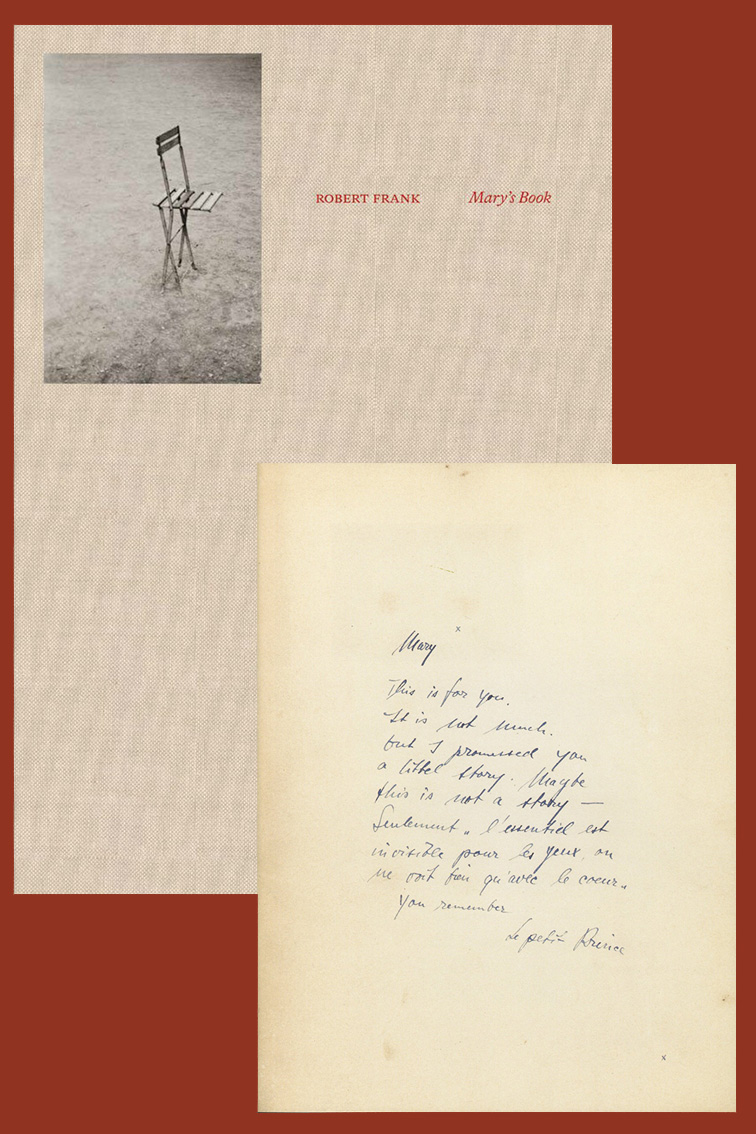 ROBERT FRANK Mary's Book
Mary
This is for you.
It is not much.
but I promessed you
a littel story. Maybe
this is not a story —
Seulement „ l'essentiel est
invisible pour les yeux, on
ne voit bien qu'avec le coeur„
You remember
Le petit Prince